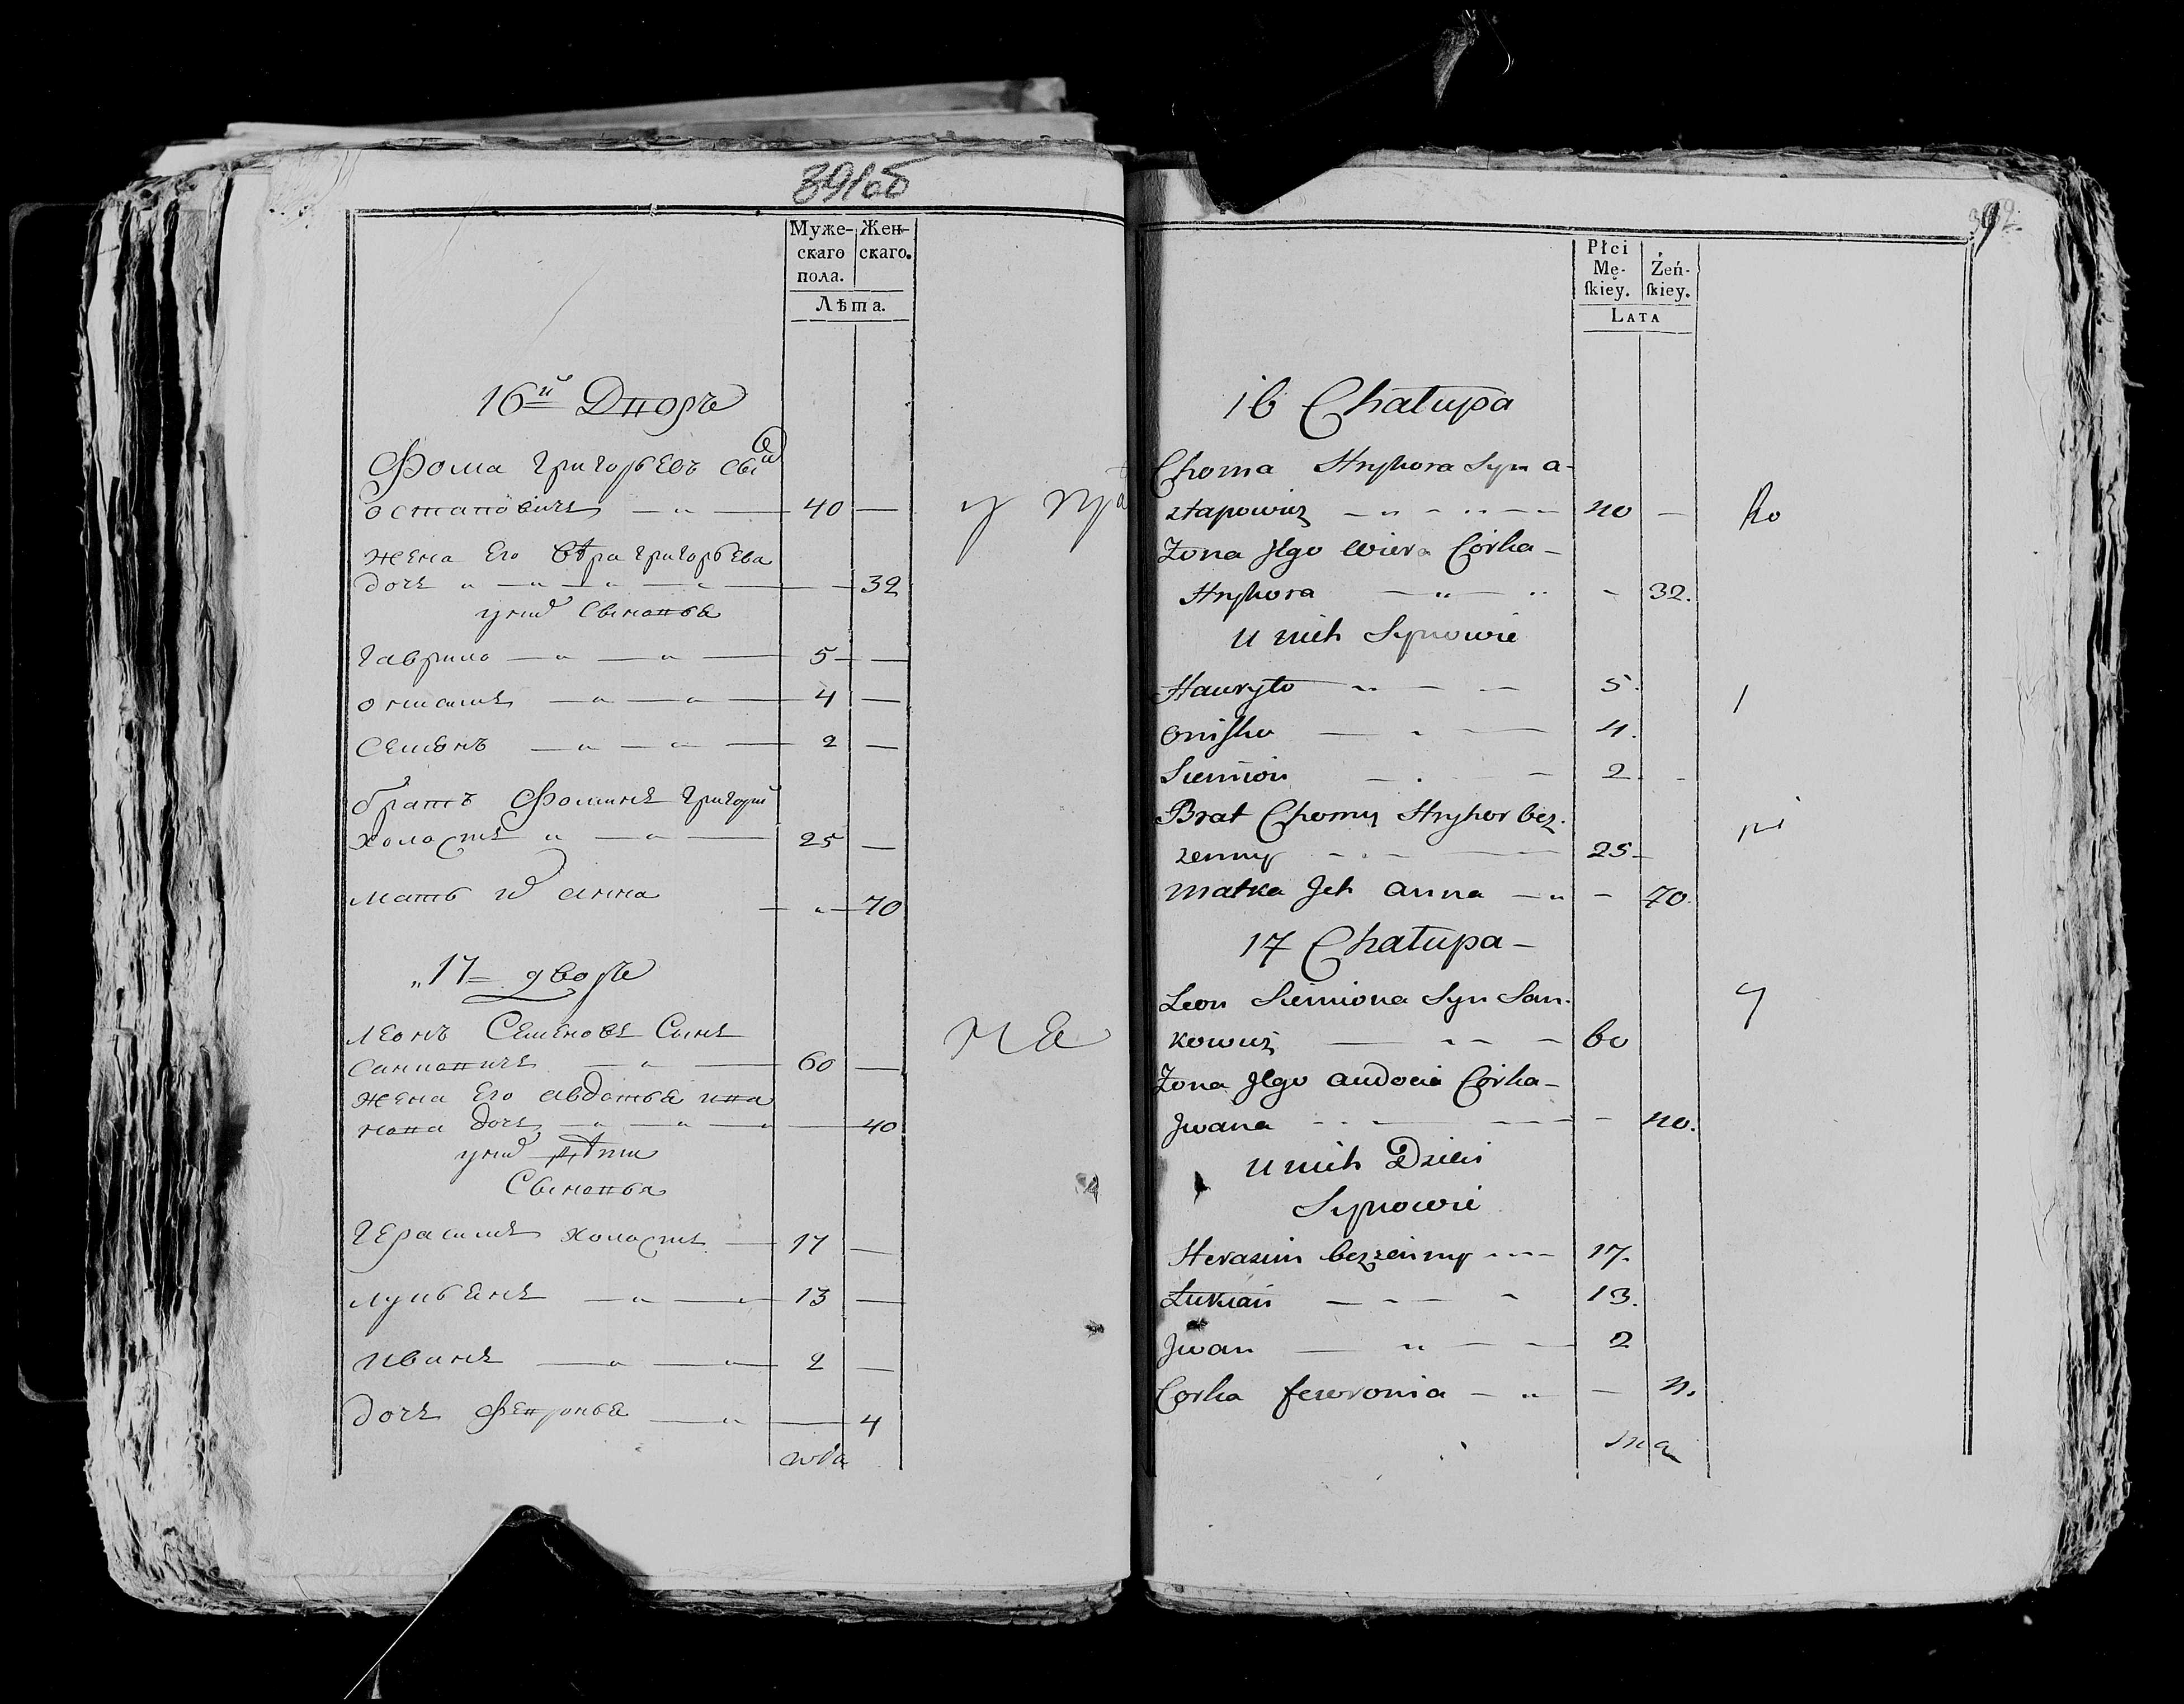 391об
Муже- Жен-
скаго скаго.
пола.
Лѣта.
16й Дворъ
Фома Григорьевъ сы
остановичъ 40 —
жена Его вѣра Григорьева
дочь — 32
у них Сыновья
Гаврило 5 —
онисимъ 4 —
Семіонъ 2 —
братъ Фоминъ Григорій
холостъ 25 —
мать их анна — 70
17 дворъ
Леонъ Семеновъ Сынъ
Санковичъ 60 —
жена Его авдотья ива
нова дочь — 40
у них дѣти
Сыновья
Герасимъ холостъ 17 —
лукьянъ 13 —
иванъ 2 —
дочь Февронья — 4
392
Płci
Mę- Żeń-
ſkiey. ſkiey.
LATA
16 Chałupa
Choma Hryhora Syn a-
stapowicz 40 —
Żona Jego Wiera Córka
Hryhora - 32.
U nich Synowie
Hawryło 5.
oniſko 4.
Siemion 2.
Brat Chomy Hryhor bez-
żenny 25
Matka Jch anna - 70.
17 Chałupa
Leon Siemiona Syn San-
kowicz 60
Żona Jego audocia Córka
Jwana - 40.
U nich Dzieci
Synowie
Herasim bezżenny 17.
Łukian 13.
Jwan 2
Corka fewronia — 4.